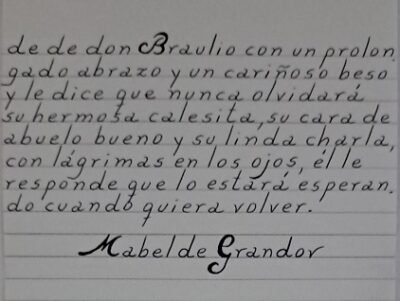 de de don Braulio con un prolon.
gado abrazo y un cariñoso beso
y le dice que nunca olvidará
su hermosa calesita, su cara de
abuelo bueno y su linda charla,
con lágrimas en los ojos, él le
responde que lo estará esperan.
do cuando quiera volver.
Mabel de Grandov